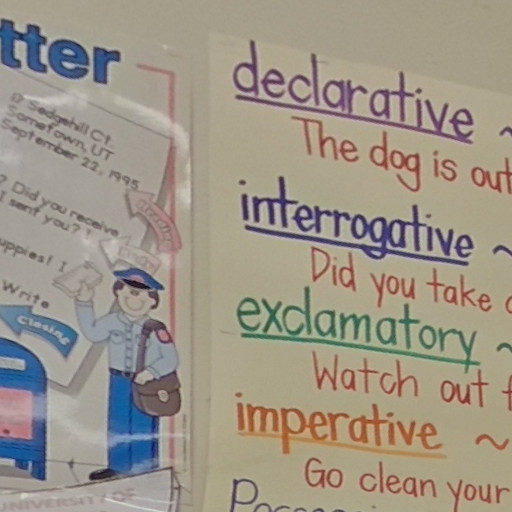 tter
Sedgehill Ct.
Sometown, UT
September 22, 1995
? Did you receive
I sent you?
uppies! I
Write
Closing
UNIVERSITY OF
declarative ~
The dog is out
interrogative ~
Did you take
exclamatory ~
Watch out f
imperative ~
Go clean your